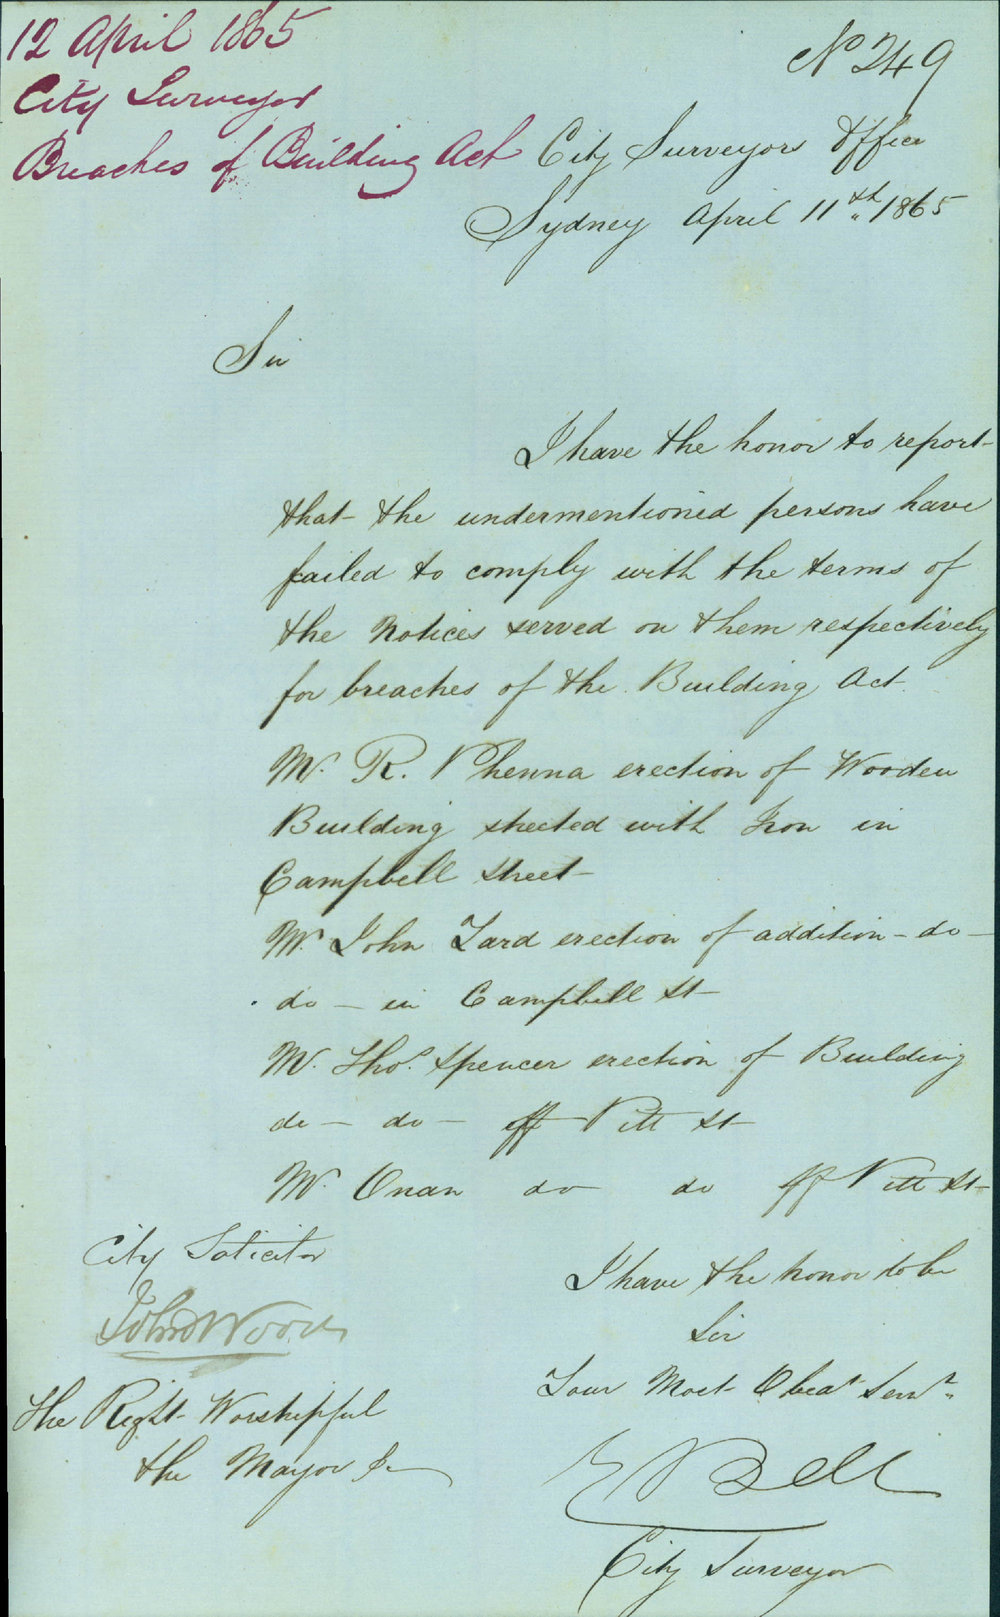 12 April 1865
City Surveyor
Breaches of Building Act
No 249
City Surveyors Office
Sydney April 11th 1865
Sir
I have the honor to report
that the undermentioned persons have
failed to comply with the terms of
the Notices served on them respectively
for breaches of the Building Act.
Mr. R. Phenna erection of Wooden
Building sheeted with Iron in
Campbell Street
Mr. John erection of addition - do -
do - in Campbell St
Mr. Thos. Spencer erection of Building
do - do - off Pitt St
Mr. Onan do do off Pitt St
City Solicitor
John Woods
I have the honor to be
Sir
Your Most Obedt Servt
The Right Worshipful
the Mayor &c
E Bell
City Surveyor